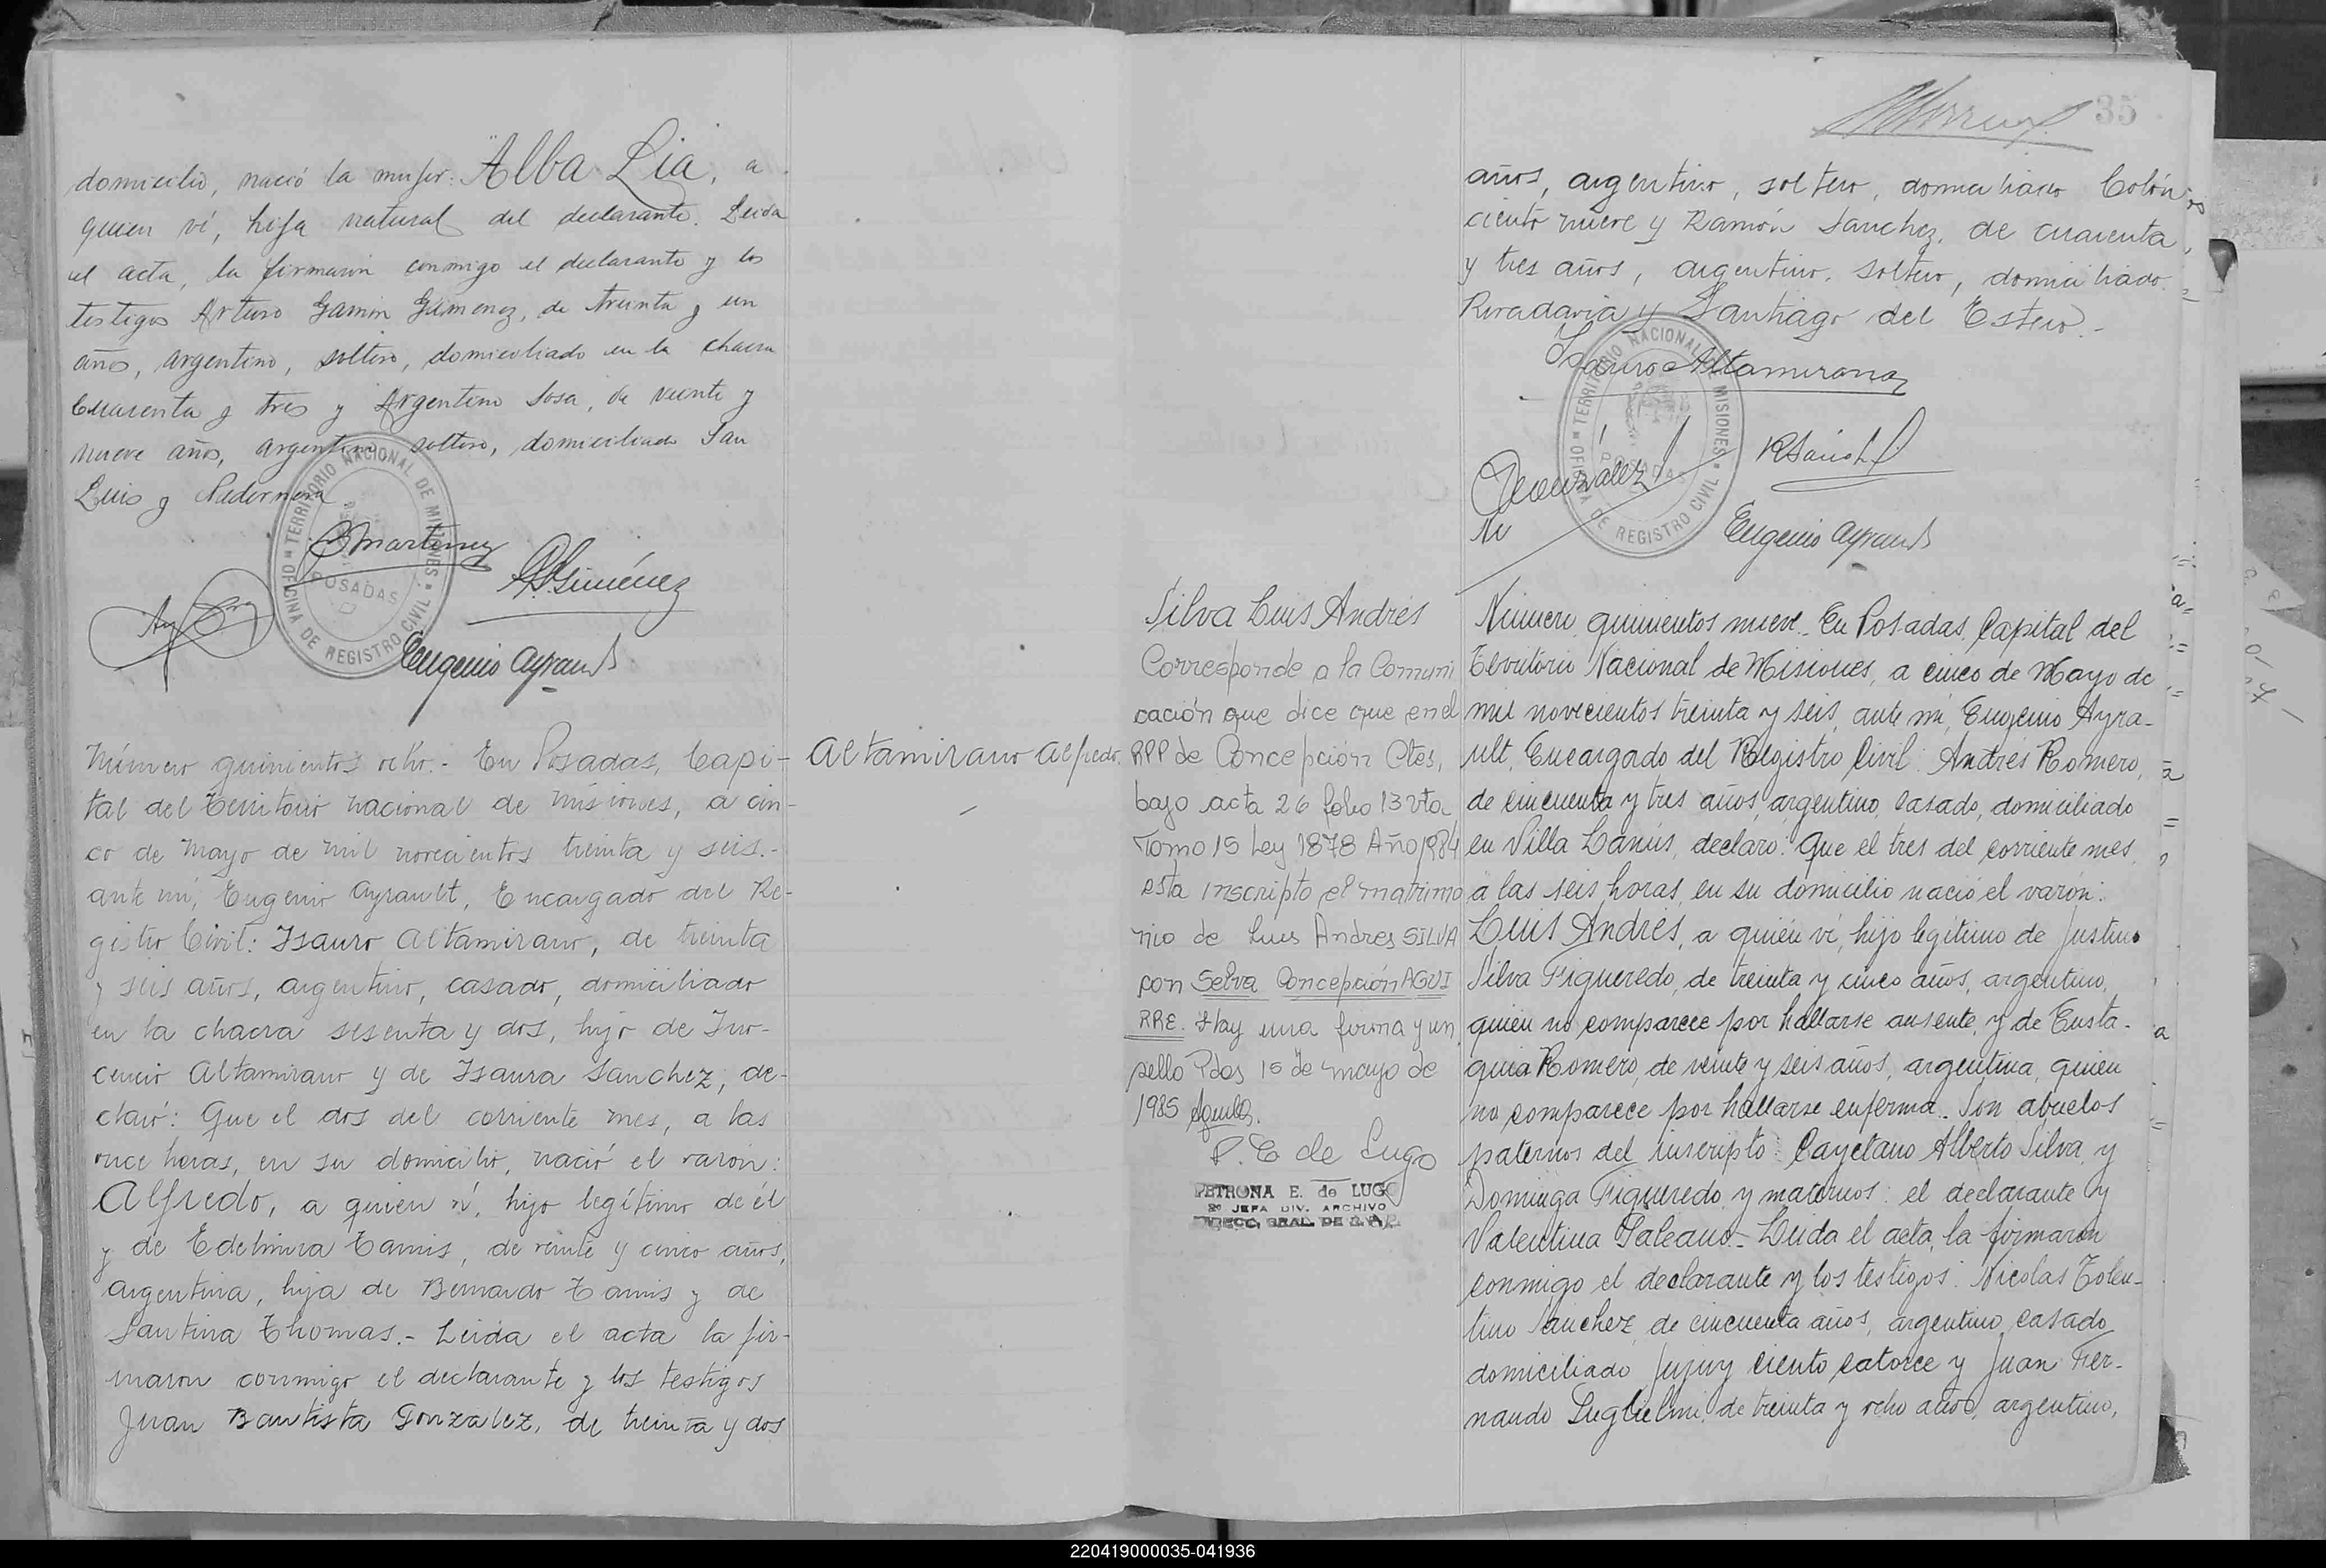 domicilio, nació la mujer: Alba Lia, a
quien ví, hija natural del declarante. Leida
el acta, la firmaron conmigo el declarante y los
testigos Arturo Gimenez, de treinta y un
años, argentino, soltero, domiciliado en la chacra
Cuarenta y tres y Argentino Sosa, de veinte y
nueve años, argentino soltero, domiciliado San
Luis y Pedernera
OFICINA DE REGISTRO CIVIL TERRITORIO NACIONAL DE MISIONES
POSADAS
Martinez
Giménez
Eugenio Ayrault
Número quinientos ocho.- En Posadas, Capi-
tal del Territorio nacional de misiones, a cin-
co de Mayo de mil novecientos treinta y seis.-
ante mí, Eugenio Ayrault, Encargado del Re-
gistro Civil: Isauro Altamirano, de treinta
y seis años, argentino, casado, domiciliado
en la chacra sesenta y dos, hijo de Ino-
cencio Altamirano y de Isaura Sanchez, de-
claró: Que el dos del corriente mes, a las
once horas, en su domicilio, nació el varon:
Alfredo, a quien ví, hijo legítimo de él
y de Edelmira Tamis, de veinte y cinco años,
argentina, hija de Bernardo Tamis y de
Santina Thomas.- Leida el acta la fir-
maron conmigo el declarante y los testigos
Juan Bautista Gonzalez, de treinta y dos
Altamirano Alfredo.
35
años, argentino, soltero, domiciliado Colón
ciento nueve y Ramón Sanchez, de cuarenta
y tres años, argentino, soltero, domiciliado
Rivadavia y Santiago del Estero.-
Isauro Altamirano
OFICINA DE REGISTRO CIVIL TERRITORIO NACIONAL DE MISIONES
POSADAS
Gonzalez
RSanchez
Eugenio Ayrault
Silva Luis Andrés
Corresponde a la Comuni
cación que dice que en el
RPP de Concepción Ctes,
bajo acta 26 folio 13 vta
Tomo 15 Ley 1878 Año 1984
esta inscripto el matrimo
nio de Luis Andres SILVA
con Selva Concepción AGUI
RRE. Hay una firma y un
sello Pdas 15 de mayo de
1985
P. E de Lugo
PETRONA E. de LUGO
2º JEFA DIV. ARCHIVO
DIRECC. GRAL. DE
Número quinientos nueve.- En Posadas, Capital del
Territorio Nacional de Misiones, a cinco de Mayo de
mil novecientos treinta y seis, ante mí, Eugenio Ayra-
ult, Encargado del Registro Civil: Andrés Romero,
de cincuenta y tres años, argentino, casado, domiciliado
en Villa Lanús, declaro: Que el tres del corriente mes,
a las seis horas, en su domicilio nació el varón:
Luis Andrés, a quién ví, hijo legítimo de Justino
Silva Figueredo, de treinta y cinco años, argentino,
quien no comparece por hallarse ausente, y de Eusta-
quia Romero, de veinte y seis años, argentina, quien
no comparece por hallarse enferma. Son abuelos
paternos del inscripto: Cayetano Alberto Silva, y
Dominga Figueredo, y maternos: el declarante y
Valentina Galeano.- Leida el acta, la firmaron
conmigo el declarante y los testigos: Nicolas Tolen-
tino Sanchez, de cincuenta años, argentino, casado,
domiciliado Jujuy ciento catorce y Juan Fer-
nando Guglielmi, de treinta y ocho años, argentino,
220419000035-041936